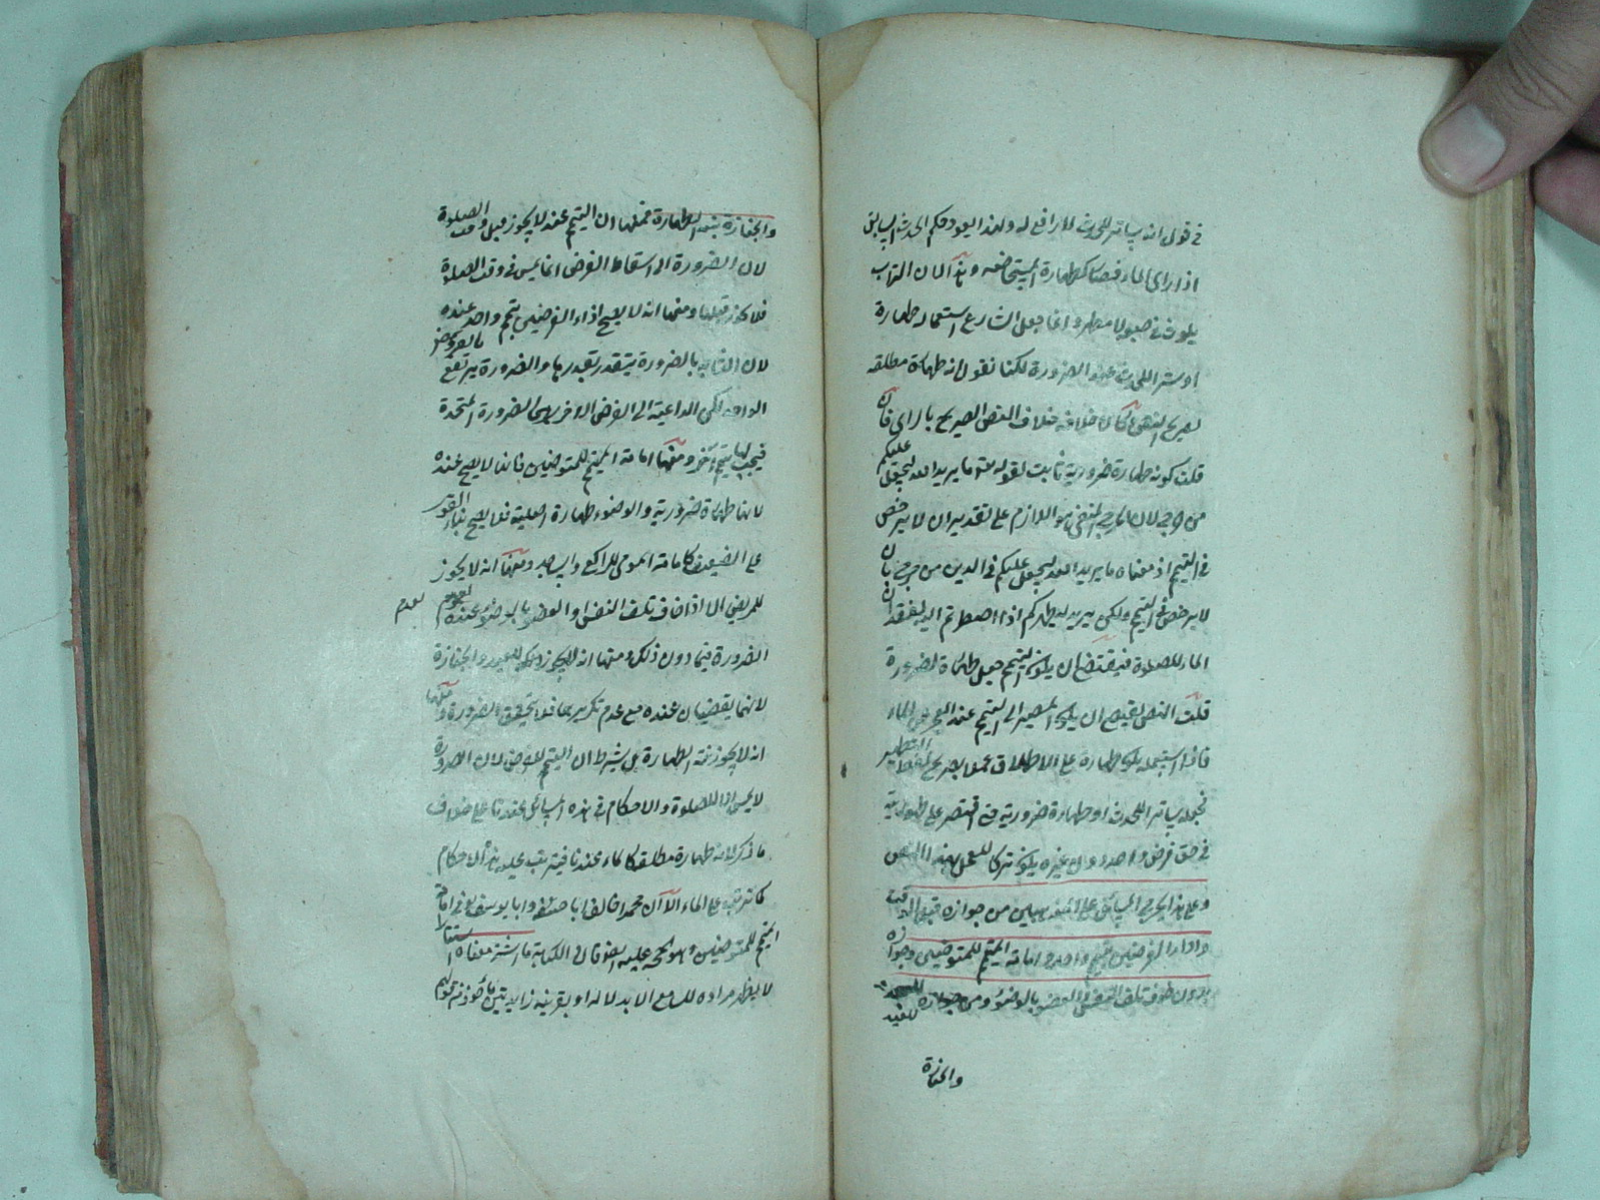 في قول انه ساتر للحدث لا رافع له ولهذا يعود حكم الحدث السابق
اذا راى الماء فصار كطهارة المستحاضة وهذا لان التراب
يلوث في ولا مطهر وانما جعل الشارع استعماله طهارة
او ستر اللحدث عند الضرورة لكنا نقول انه طهارة مطلقه
بصريح النص فكان خلافه خلاف النص الصريح بالراى فان
قلت كونه طهارة ضرورية ثابت لقوله تع ما يريد الله ليجعل عليكم
من حرج لان الحرج المنفى هو اللازم على تقدير ان لا يرخص
في التيمم اذ معناه ما يريد الله ليجعل عليكم في الدين من حرج بان
لا يرخص في التيمم ولكن يريد ليطهركم اذا اضطررتم اليه لفقدان
الماء للصلوة فيقتضى ان يكون التيمم جعل طهارة لضرورة
قلت النص يقتضى ان يكون المصير الى التيمم عند العجز عن الماء
فاذا استعمله يكون طهارة على الاطلاق عملا بصريح لفظ التطهير
فجعله ساترا للحدث او طهارة ضرورية حتى اقتصر على طهوريته
في حق فرض واحد دون غيره يكون تركا للعمل بهذا النص
وعلى هذا يخرج المسائل على المذهبين من جوازه قبل الوقت
واداء الفرضين بتيمم واحد وامامة المتيمم للمتوضئين وجوازه
بدون خوف تلف النفس او العضو بالوضوء ومن جوازه للعيد
والجنازة
والجنازة بنية الطهارة فمنها ان التيمم عنده لا يجوز قبل وقت الصلوة
لان الضرورة الى اسقاط الفرض انما يمس في وقت الصلوة
فلا يجوز قبلها ومنها انه لا يصح اداء الفرضين بتيمم واحد عنده
لان الثابت بالضرورة يتقدر بقدرها والضرورة يرتفع بالفرض
الواحد لكن الداعية الى الفرض الاخر الضرورة المتحدة
فيجب لها تيمم آخر ومنها امامة المتيمم للمتوضئين فانها لا يصح عنده
لانها طهارة ضرورية والوضوء طهارة اصلية فلا يصح بناء القوى
على الضعيف كامامة المومى للراكع والساجد ومنها انه لا يجوز
للمريض الا اذا خاف تلف النفس او العضو بالوضوء عنده لعدم
لعدم
الضرورة فيما دون ذلك ومنها انه لا يجوز للعيد والجنازة
لانهما يقضيان عنده مع عدم تكريرهما فلا يتحقق الضرورة ومنها
انه لا يجوز بنية الطهارة بل يشترط ان التيمم للفرض لان الضرورة
لا يمس الا للصلوة والاحكام في هذه المسائل عندنا على خلاف
ما ذكر لانه طهارة مطلقة كالماء عندنا فيترتب عليه هذه الاحكام
كما ترتب على الماء الا ان محمدا خالف ابا حنيفة وابا يوسف في امامة
المتيمم للمتوضئين وهو الحجة عليه ايضا قال في الكناية ما استتر معناه
لا يظهر مراده للسامع الا بدلالة او بقرينة زايدة